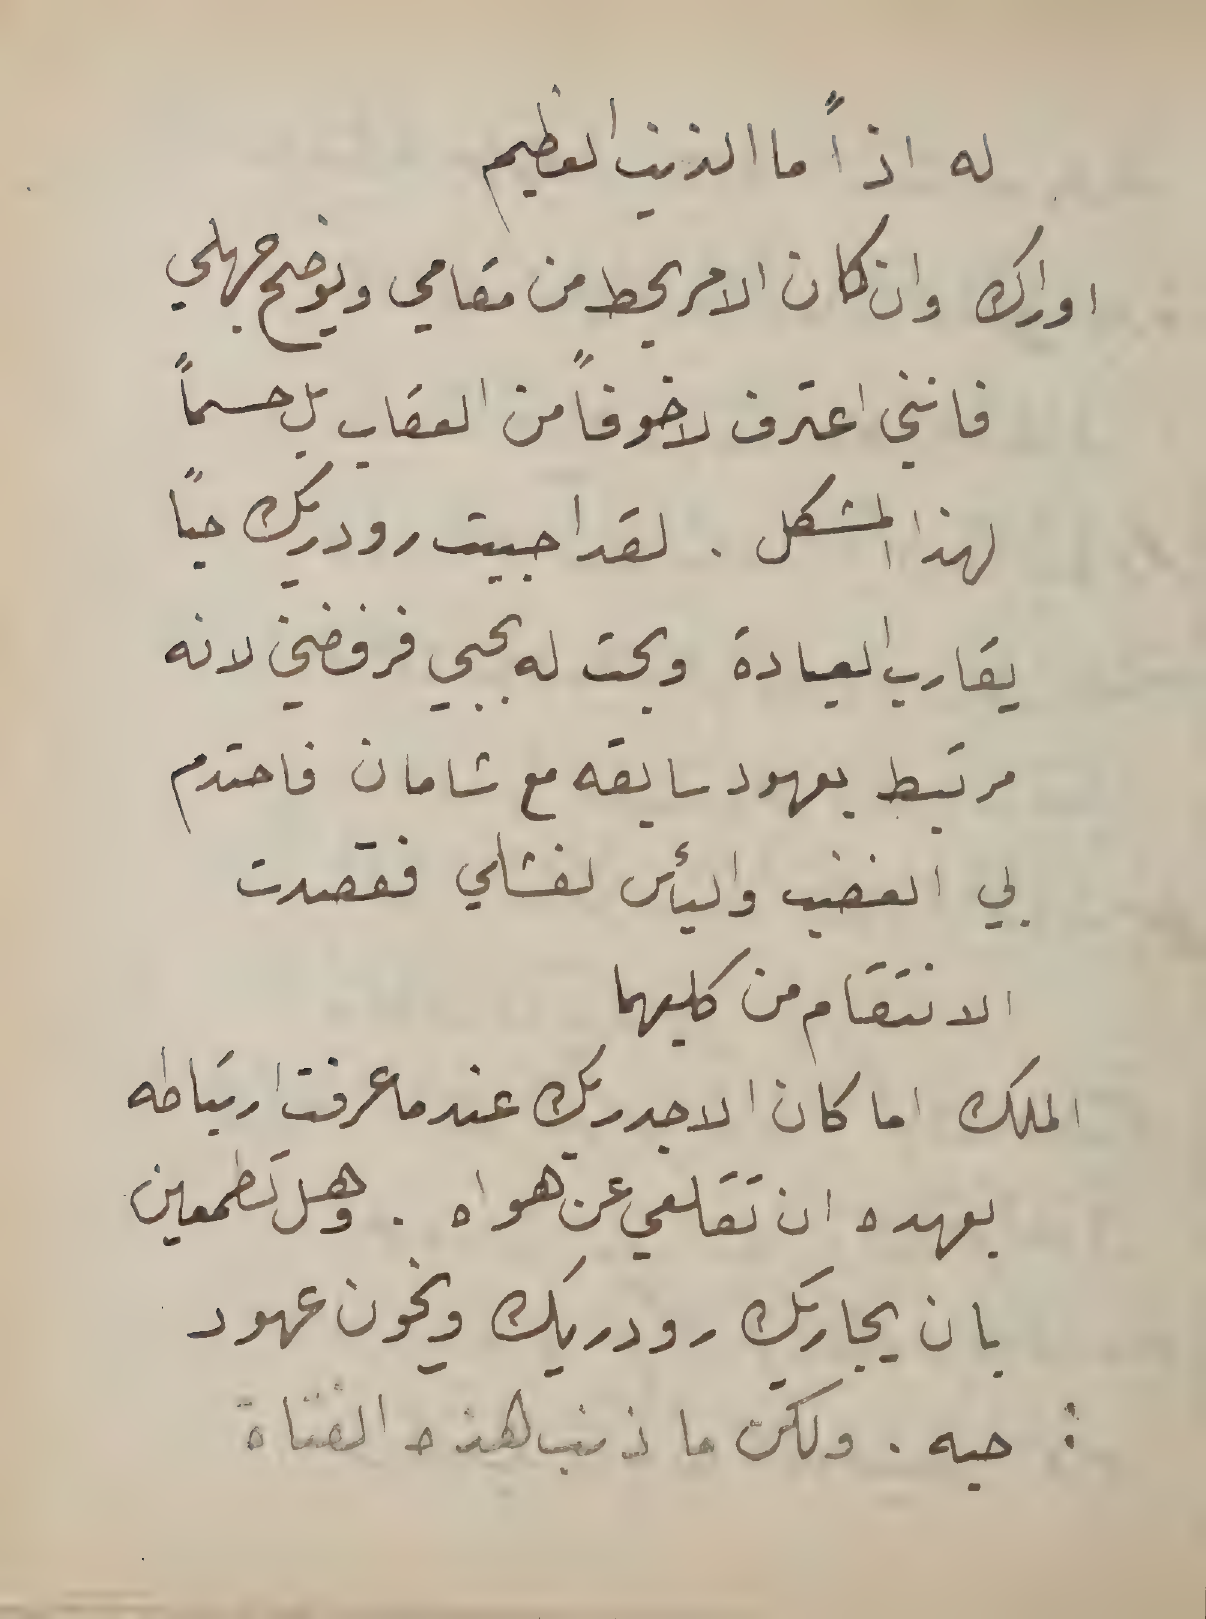 له اذاً ما الذنب العظيم
اوراك وان كان الامر يحط من مقامي ويوضح جهلي
فانني اعترف لا خوفاً من العقاب بل حسماً
لهذا المشكل . لقد احببت رودريك حباً
يقارب العبادة وبحت له بحبي فرفضني لانه
مرتبط بعهود سابقه مع شامان فاحتدم
بي الغضب واليأس لفشلي فقصدت
الانتقام من كليهما
الملك اما كان الاجدر بك عندما عرفت ارتباطه
بعهده ان تقلعي عن هواه . وهل تطمعين
بان يجاريك رودريك ويخون عهود
حبه . ولكن ما ذنب هذه الفتاة :